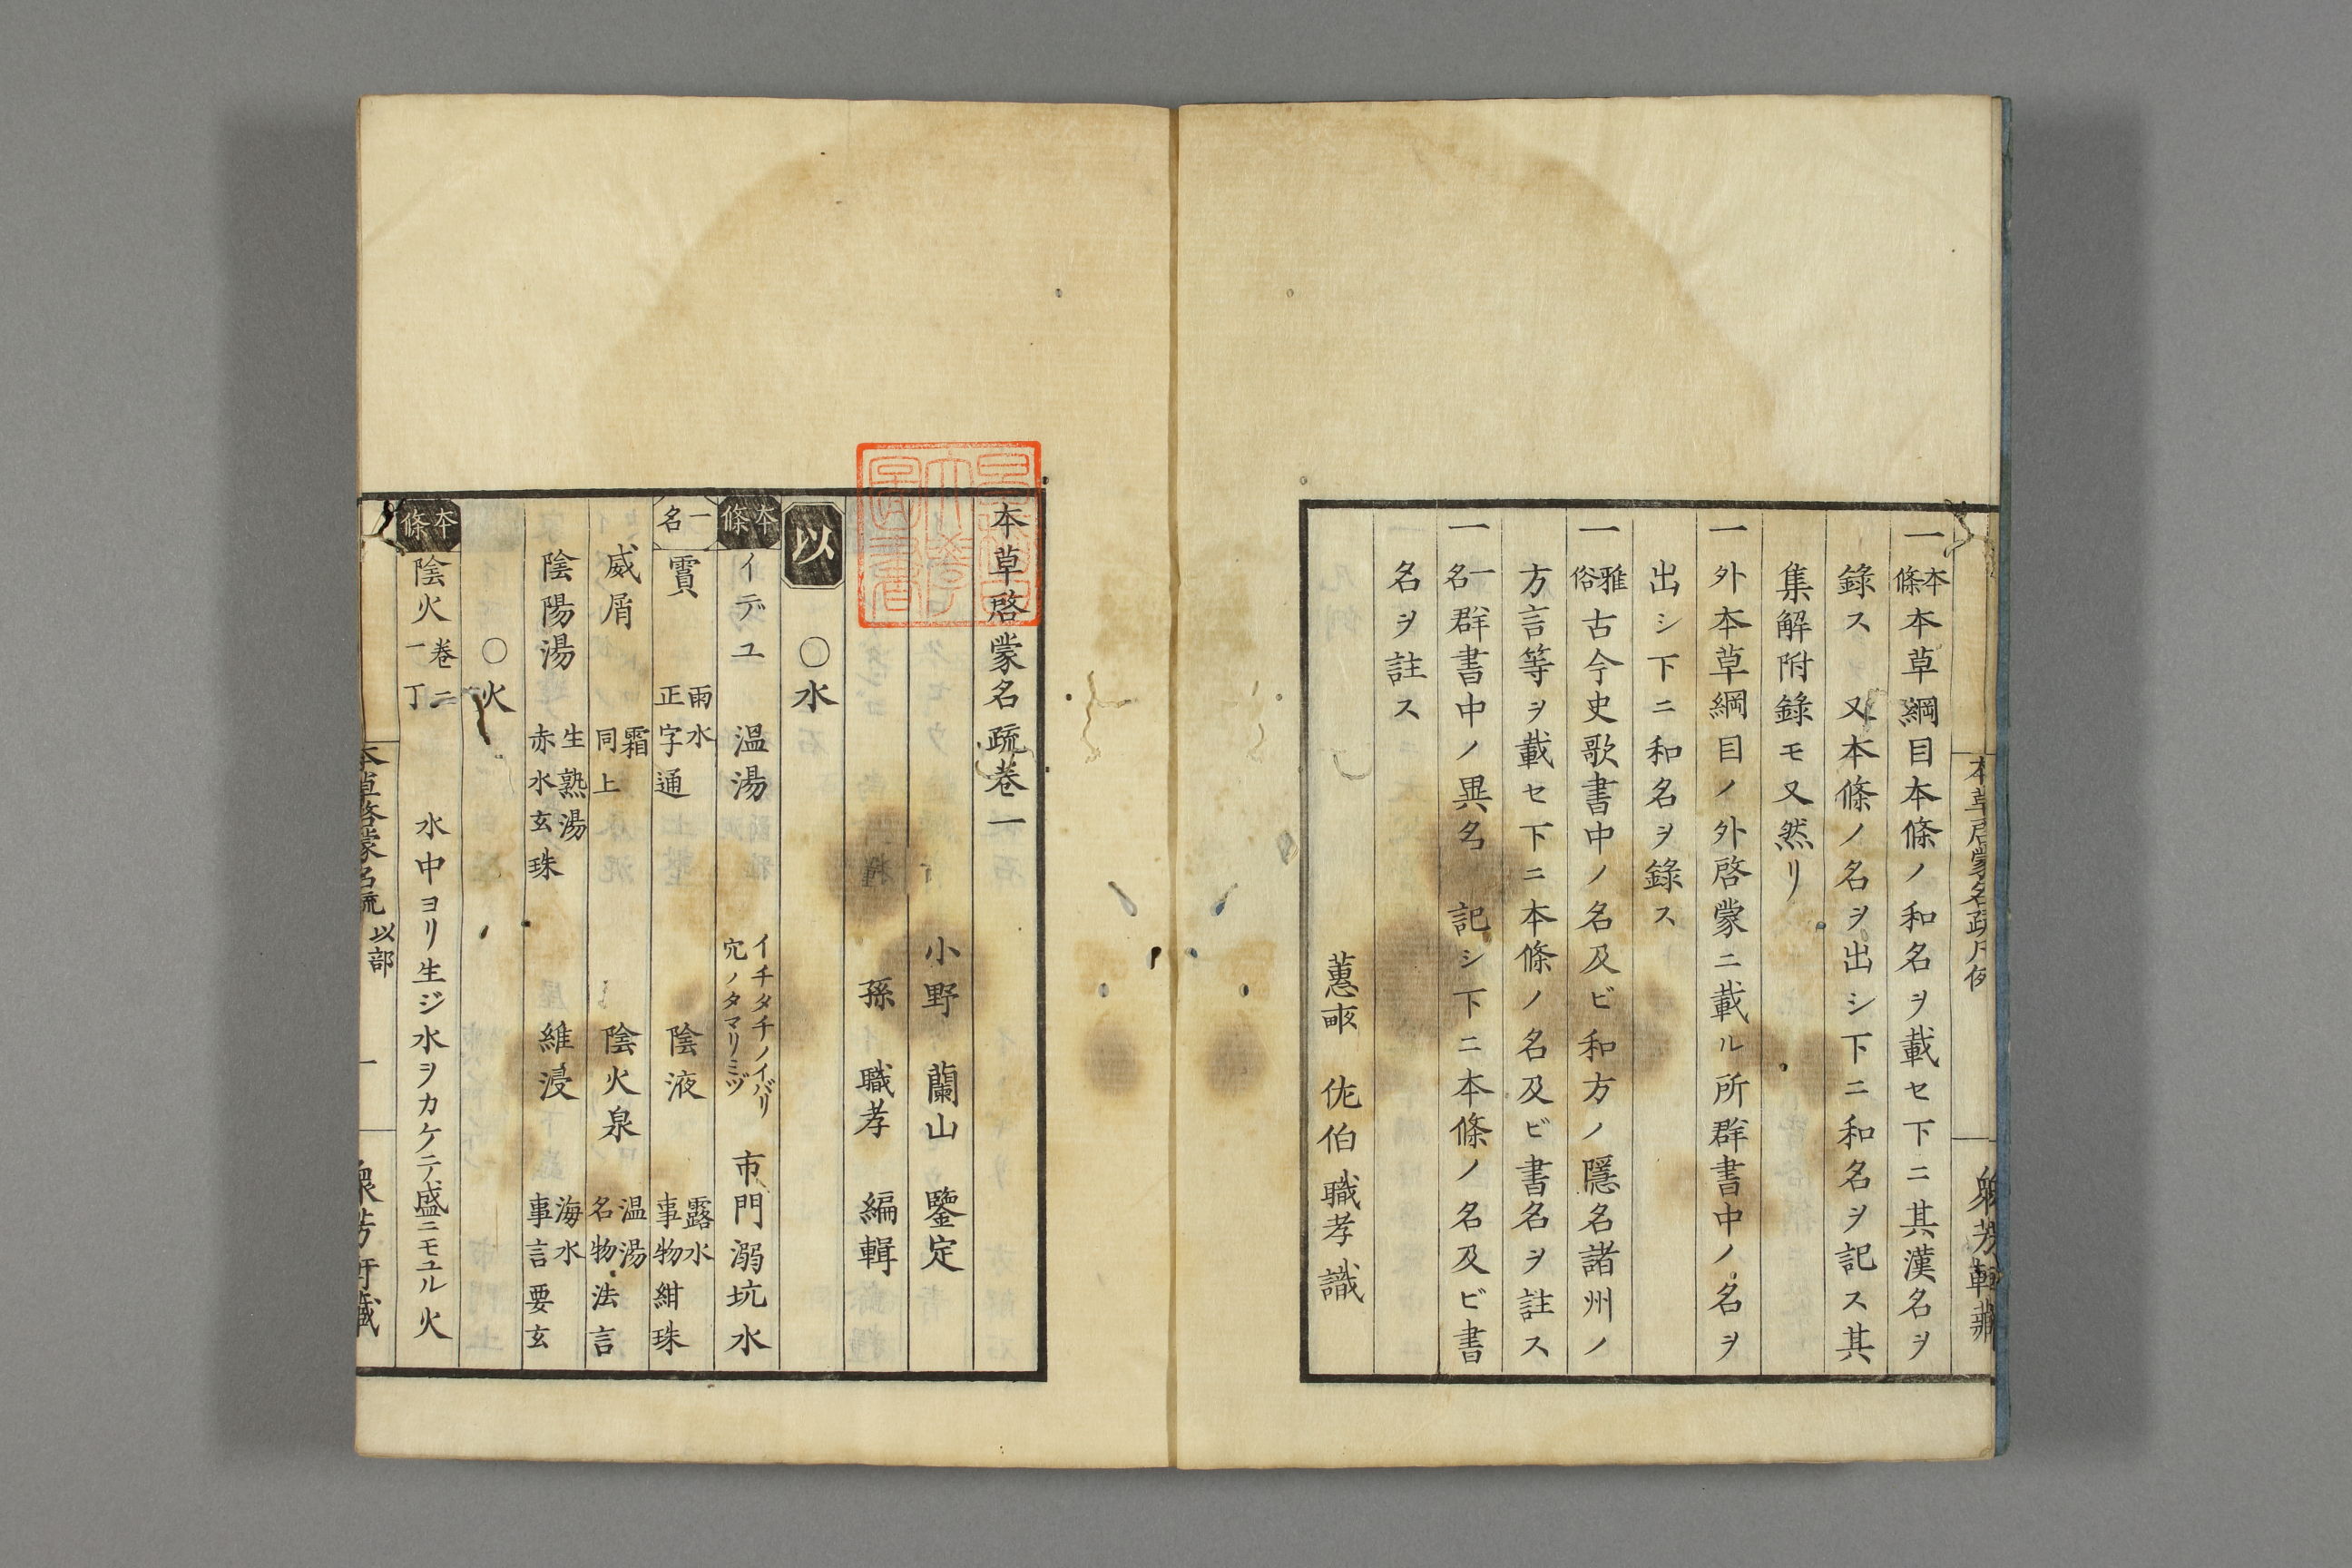 一本條本草綱目本條ノ和名ヲ載セ下ニ其漢名ヲ
錄ス又本條ノ名ヲ出シ下ニ和名ヲ記ス其
集解附錄モ又然リ
一外本草綱目ノ外啓蒙ニ載ル所群書中ノ名ヲ
出シ下ニ和名ヲ錄ス
一雅俗古今史歌書中ノ名及ビ和方ノ隱名諸州ノ
方言等ヲ載セ下ニ本條ノ名及ビ書名ヲ註ス
一一名群書中ノ異名 記シ下ニ本條ノ名及ビ書
名ヲ註ス
蕙畝 佐伯職孝識
本草啓蒙名疏卷一
小野 蘭山 鑒定
孫 職孝 編輯
以 ○水
本條 イデユ 温湯 イチタチノイバリ 穴ノタマリミヅ 市門溺坑水
一名 霣 雨水 正字通 陰液 露水 事物紺珠
威屑 霜 同上 陰火泉 温湯 名物法言
陰陽湯 生熟湯 赤水玄珠 維浸 海水 事言要玄
○火
本條 陰火 卷二 一丁 水中ヨリ生ジ水ヲカケテ盛ニモユル火
本草啓蒙名疏 以部 一 衆芳軒藏